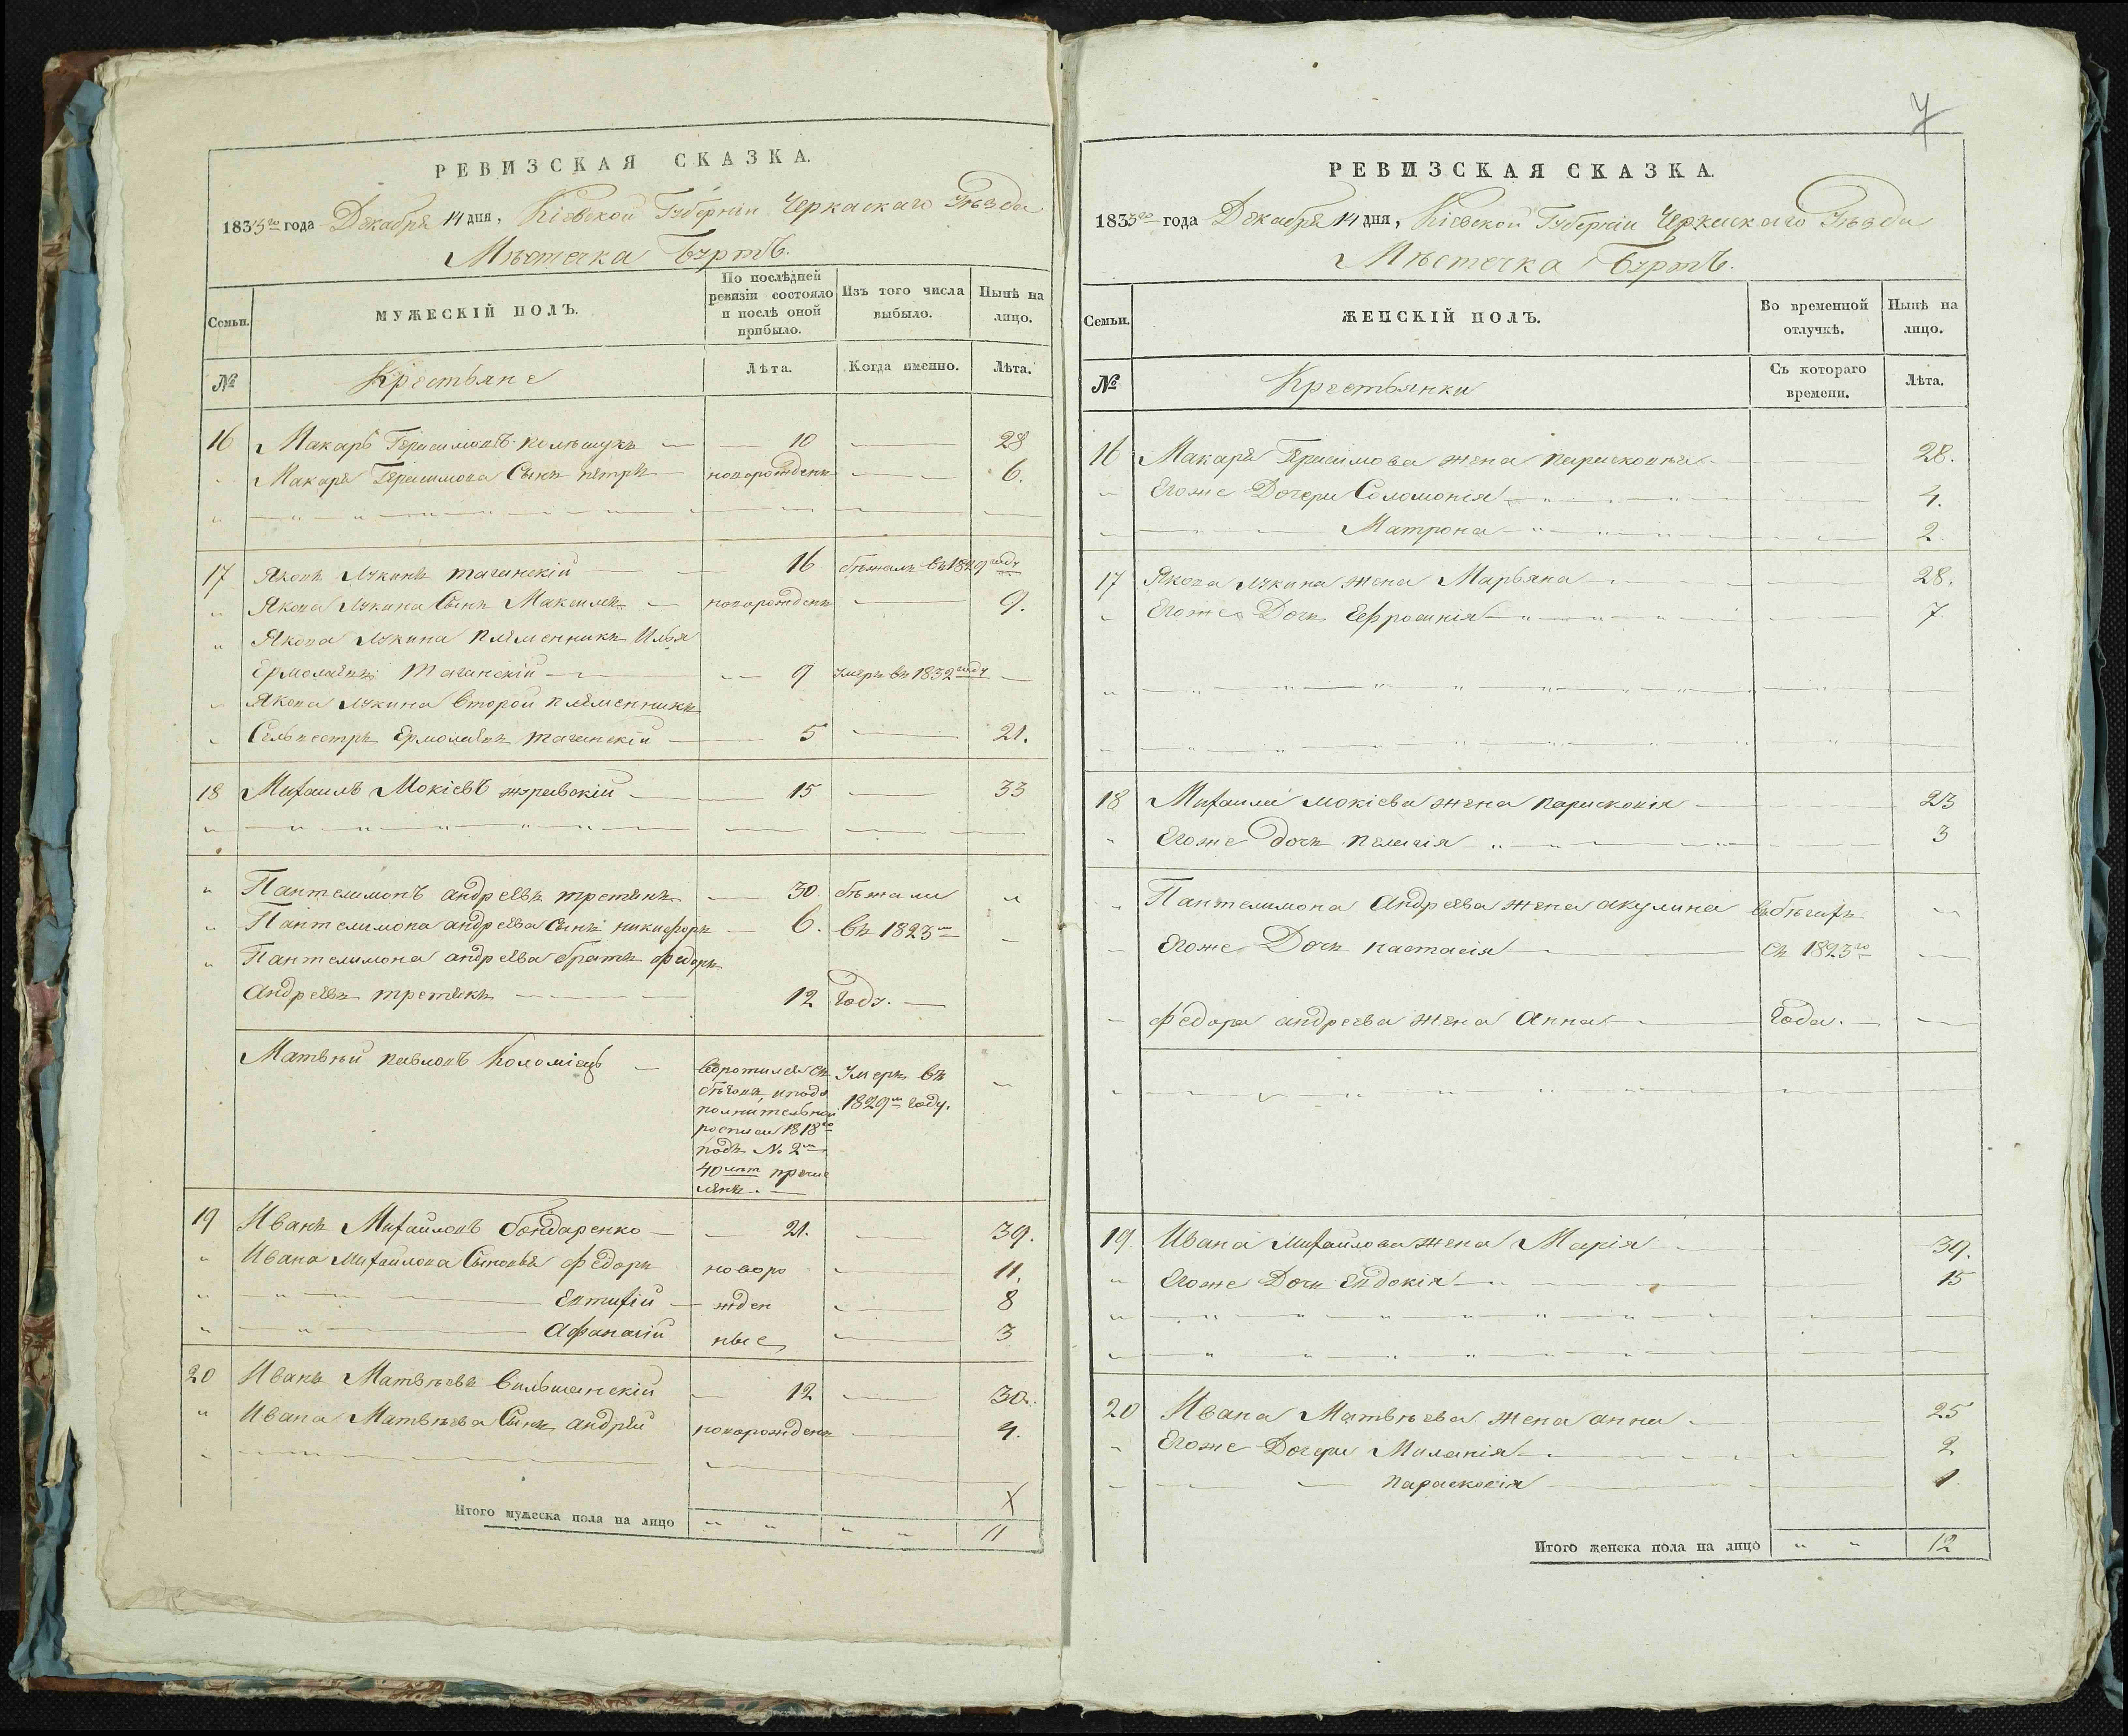 РЕВИЗСКАЯ СКАЗКА.
1835го года Декабря 14 дня, Кіевской Губерніи Черкаскаго Уѣзда
Мѣстечка Буртъ.
Семьи.
МУЖЕСКІЙ ПОЛЪ.
По послѣдней ревизіи состояло и послѣ оной прибыло.
Изъ того числа выбыло.
Нынѣ на лицо.
№
Крестьяне
Лѣта.
Когда именно.
Лѣта.
16 Макаръ Герасимовъ 10 28
Макара Герасимова Сынъ петръ новорожденъ 6.
17 Яковъ Лукинъ таганскій 16 бѣжалъ въ 1829 году
Якова Лукина Сынъ Максимъ новорожденъ 9.
Якова Лукина племенникъ Илья
Ермолаевъ таганскій 9 умеръ въ 1832 году
Якова Лукина второй племенникъ
Сельвестръ Ермолаевъ таганскій 5 21.
18 Михаилъ Мокіевъ журавскій 15 33
Пантелимонъ андреевъ третякъ 30. бѣжали
Пантелимона андреева Сынъ никифоръ 6. въ 1823м
Пантелимона андреева братъ федоръ
андреевъ третякъ 12 году.
Матвѣй павловъ Коломіецъ
воротился съ Умеръ въ
бѣговъ, и подо 1829м году.
полнительной
росписи 1818го
подъ № 2м
40 лѣтъ причи
сленъ.
19 Иванъ Михайловъ бондаренко 21. 39.
Ивана Михайлова Сыновья федоръ новоро 11.
Евтихій жден 8
Афанасій ные, 3
20 Иванъ Матвѣевъ вильшанскій 12 30.
Ивана Матвѣева Сынъ андрей новорожденъ 4.
Итого мужеска пола на лицо 11
7
РЕВИЗСКАЯ СКАЗКА.
1835го года Декабря 14 дня, Кіевской Губерніи Черкаскаго Уѣзда
Мѣстечка Буртъ.
Семьи.
ЖЕНСКІЙ ПОЛЪ.
Во временной отлучкѣ.
Нынѣ на лицо.
№
Крестьянки
Съ котораго времени.
Лѣта.
16 Макара Герасимова жена 28.
Егоже Дочери Соломонія 4.
Матрона 2.
17 Якова Лукина жена Марьяна 28.
Егоже Дочь Ефросинія 7.
18 Михаила мокіева жена парасковія 23
Егоже дочь пелагія 3
Пантелимона Андреева жена акулина въ бѣгахъ
Егоже Дочь настасія съ 1823го
федора андреева жена Анна года.
19. Ивана михайлова жена Марія 39.
Егоже Дочь Евдокія 15
20 Ивана Матвѣева жена анна 25
Егоже Дочери Маланія 2
парасковія 1.
Итого женска пола на лицо 12